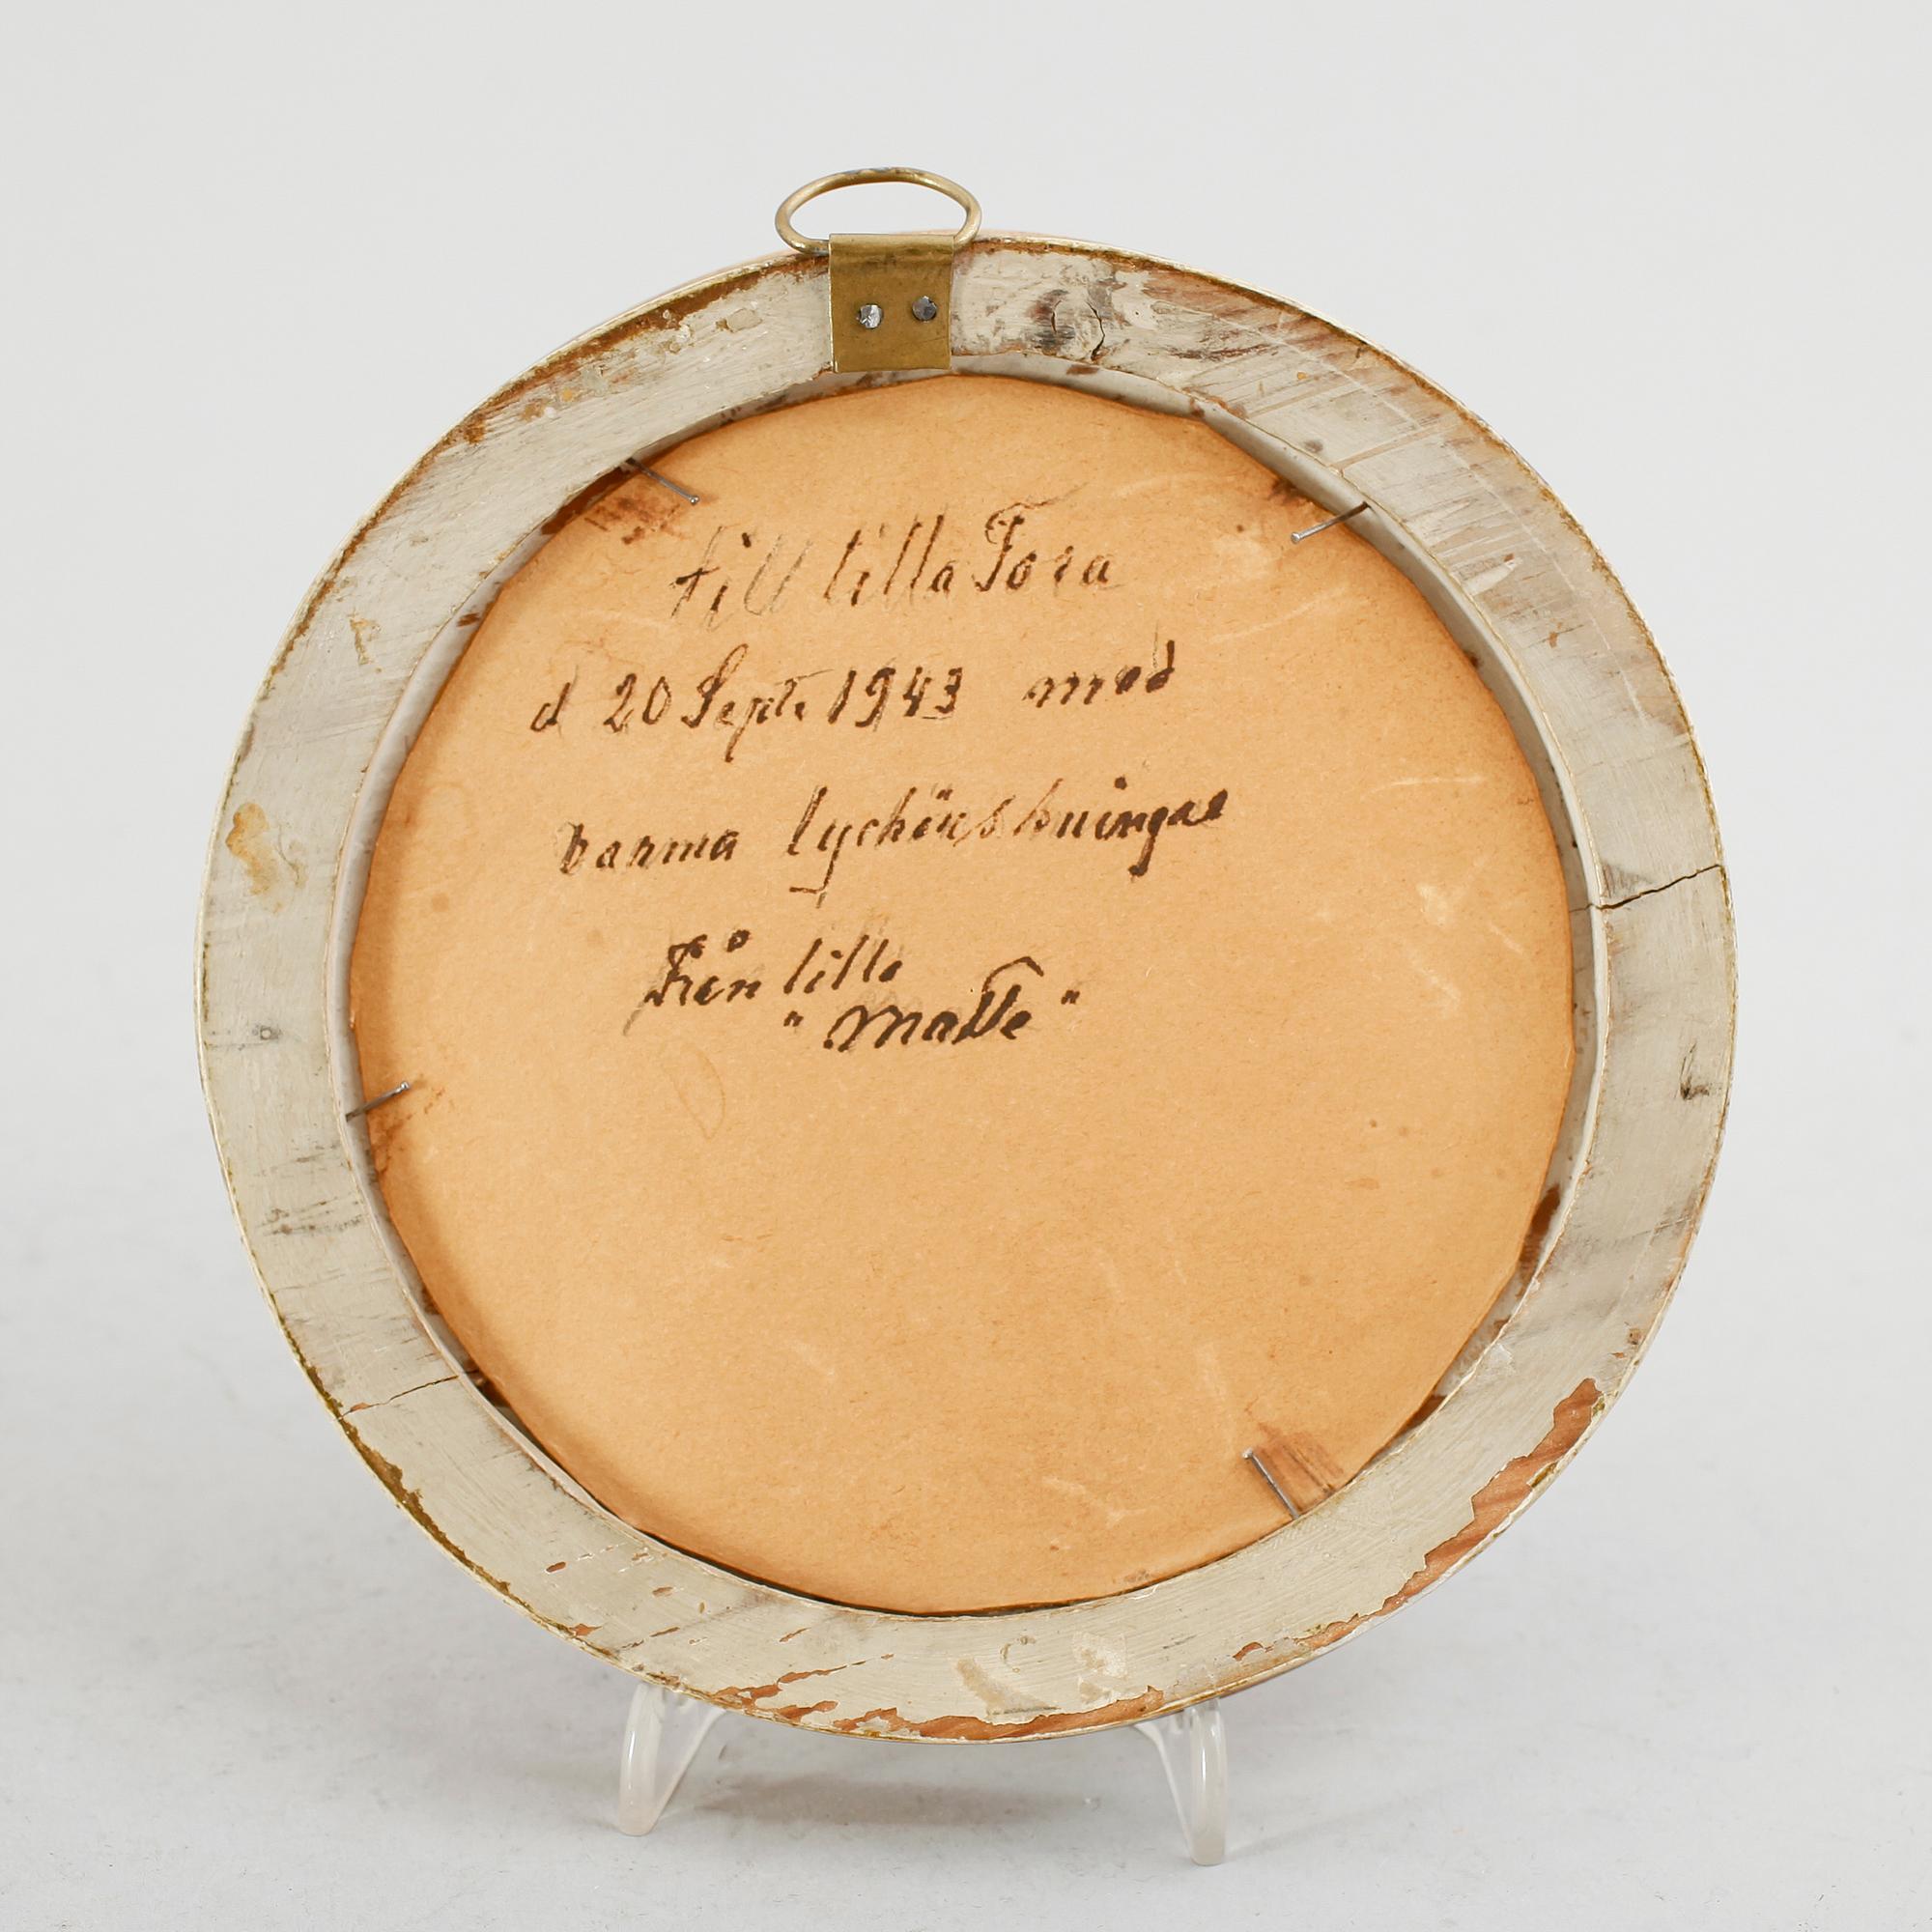 till lilla Tora
d 20 Sept. 1943 med
varma lyckönskningar
Från lilla
"Matte"